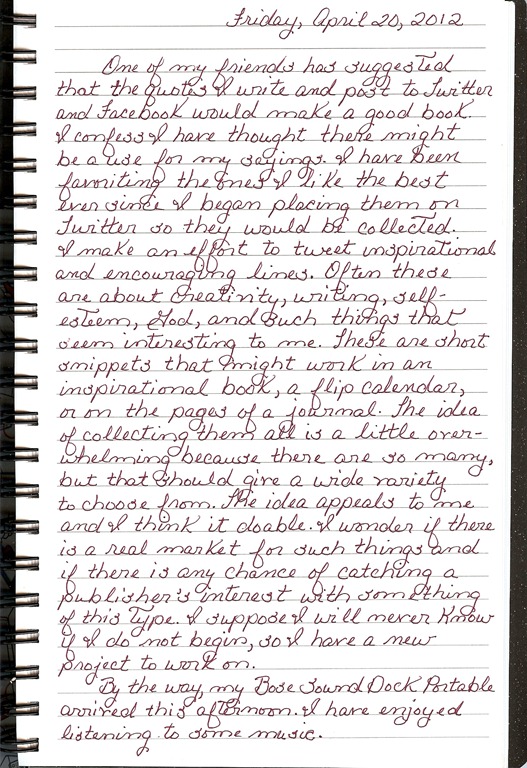 Friday, April 20, 2012
One of my friends has suggested
that the quotes I write and post to Twitter
and Facebook would make a good book.
I confess I have thought there might
be a use for my sayings. I have been
favoriting the ones I like the best
ever since I began placing them on
Twitter so they would be collected.
I make an effort to tweet inspirational
and encouraging lines. Often these
are about creativity, writing, self-
esteem, God, and such things that
seem interesting to me. These are short
snippets that might work in an
inspirational book, a flip calendar,
or on the pages of a journal. The idea
of collecting them all is a little over-
whelming because there are so many,
but that should give a wide variety
to choose from. The idea appeals to me
and I think it doable. I wonder if there
is a real market for such things and
if there is any chance of catching a
publisher's interest with something
of this type. I suppose I will never know
if I do not begin, so I have a new
project to work on.
By the way, my Bose Sound Dock Portable
arrived this afternoon. I have enjoyed
listening to some music.